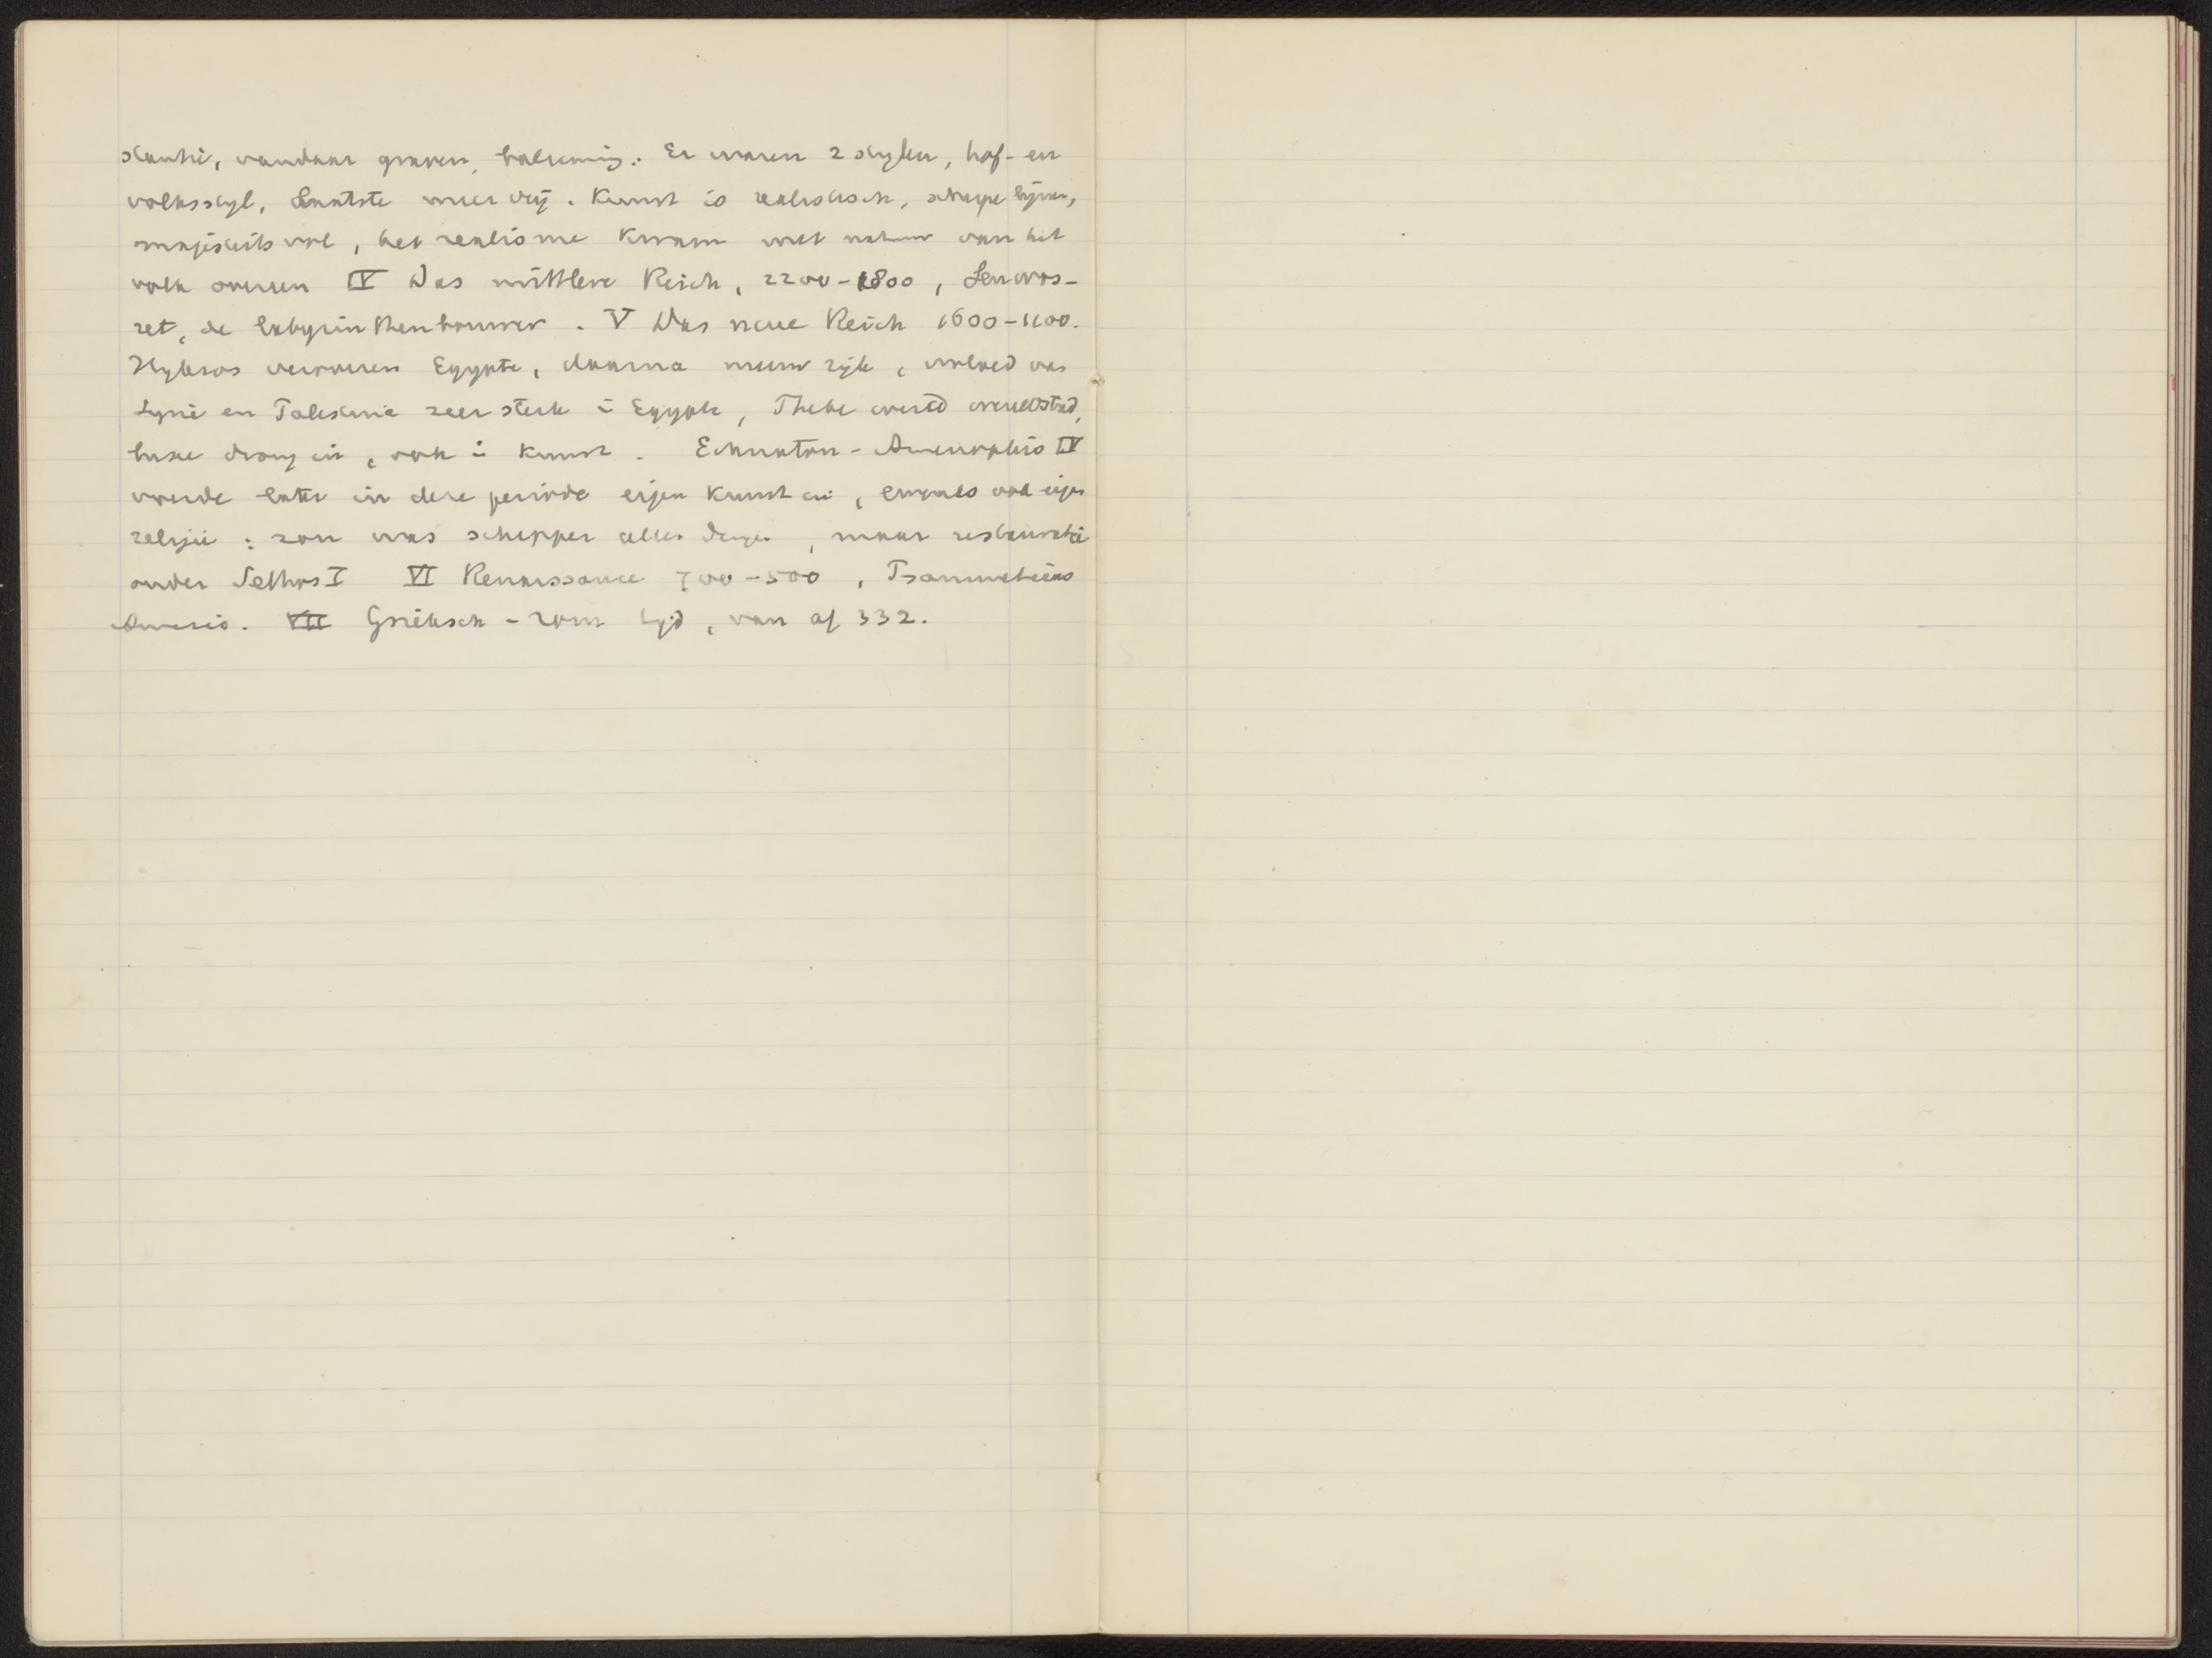 stantie, vandaar graven, balseming. Er waren 2 stylen, hof- en
volksstyl, laatste meer vrij. Kunst is realistisch, scherpe lijnen,
majesteitsvol, het realisme kwam met natuur van het
volk overeen IV Das mittlere Reich, 2200-1800, Senwos-
ret, de labyrinthenbouwer. V Das neue Reich 1600-1100.
Hyksos veroveren Egypte, daarna nieuw rijk, invloed van
Syrië en Palestina zeer sterk i Egypte, Thebe wereld wereldstad,
luxe drong in, ook i kunst. Echnaton-Amenophis IV
voerde later in deze periode eigen kunst in, evenals ook eigen
religie: zon was schepper aller dingen, maar restauratie
onder Sethos I VI Renaissance 700-500, Psammetichos
Amasis. VII Grieksch-rom tijd, van af 332.